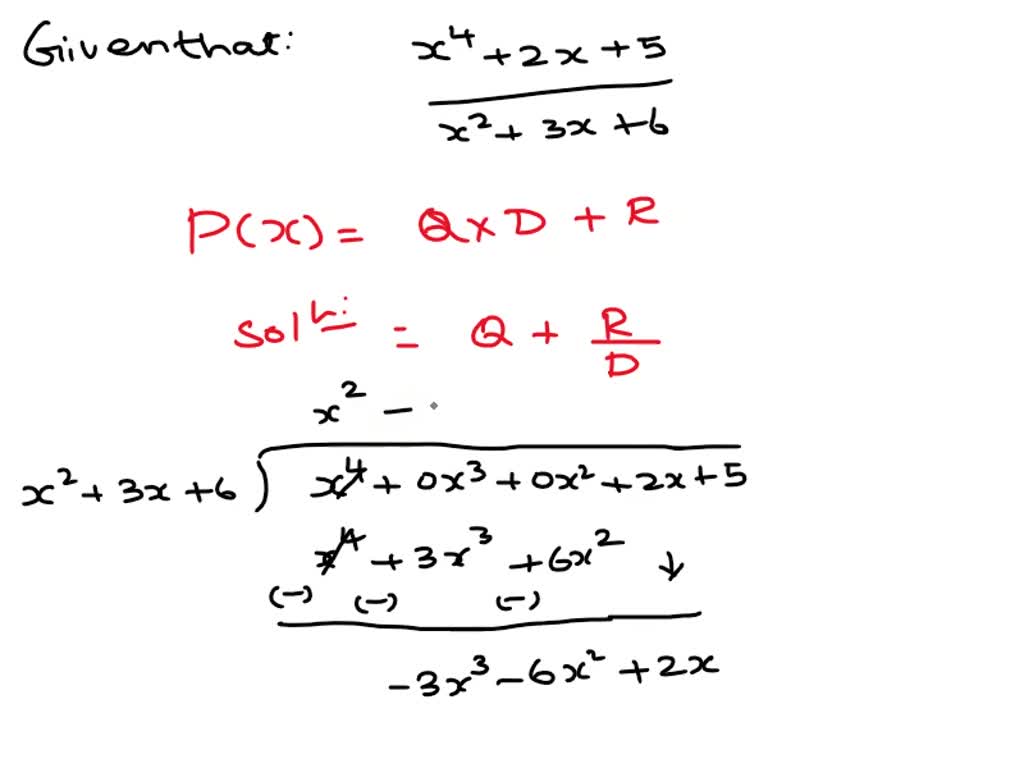 Given that:
x⁴ + 2x + 5
x² + 3x + 6
P(x) = Q × D + R
Solⁿ: = Q + R/D
x² -
x² + 3x + 6 ) x⁴ + 0x³ + 0x² + 2x + 5
x⁴ + 3x³ + 6x² ↓
(-) (-) (-)
-3x³ - 6x² + 2x